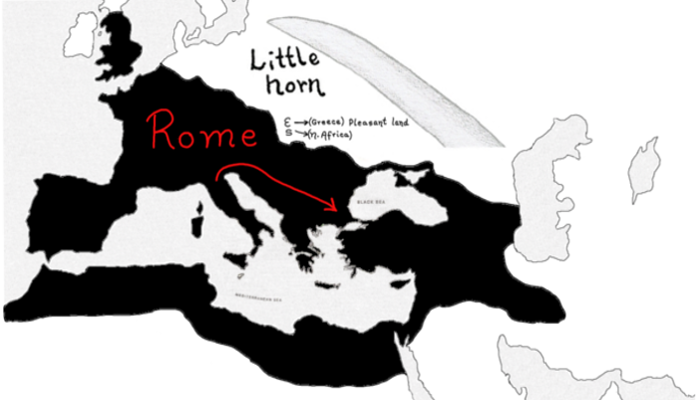 Little
horn
E →(Greece) Pleasant land
S →(N. Africa)
Rome
BLACK SEA
MEDITERRANEAN SEA